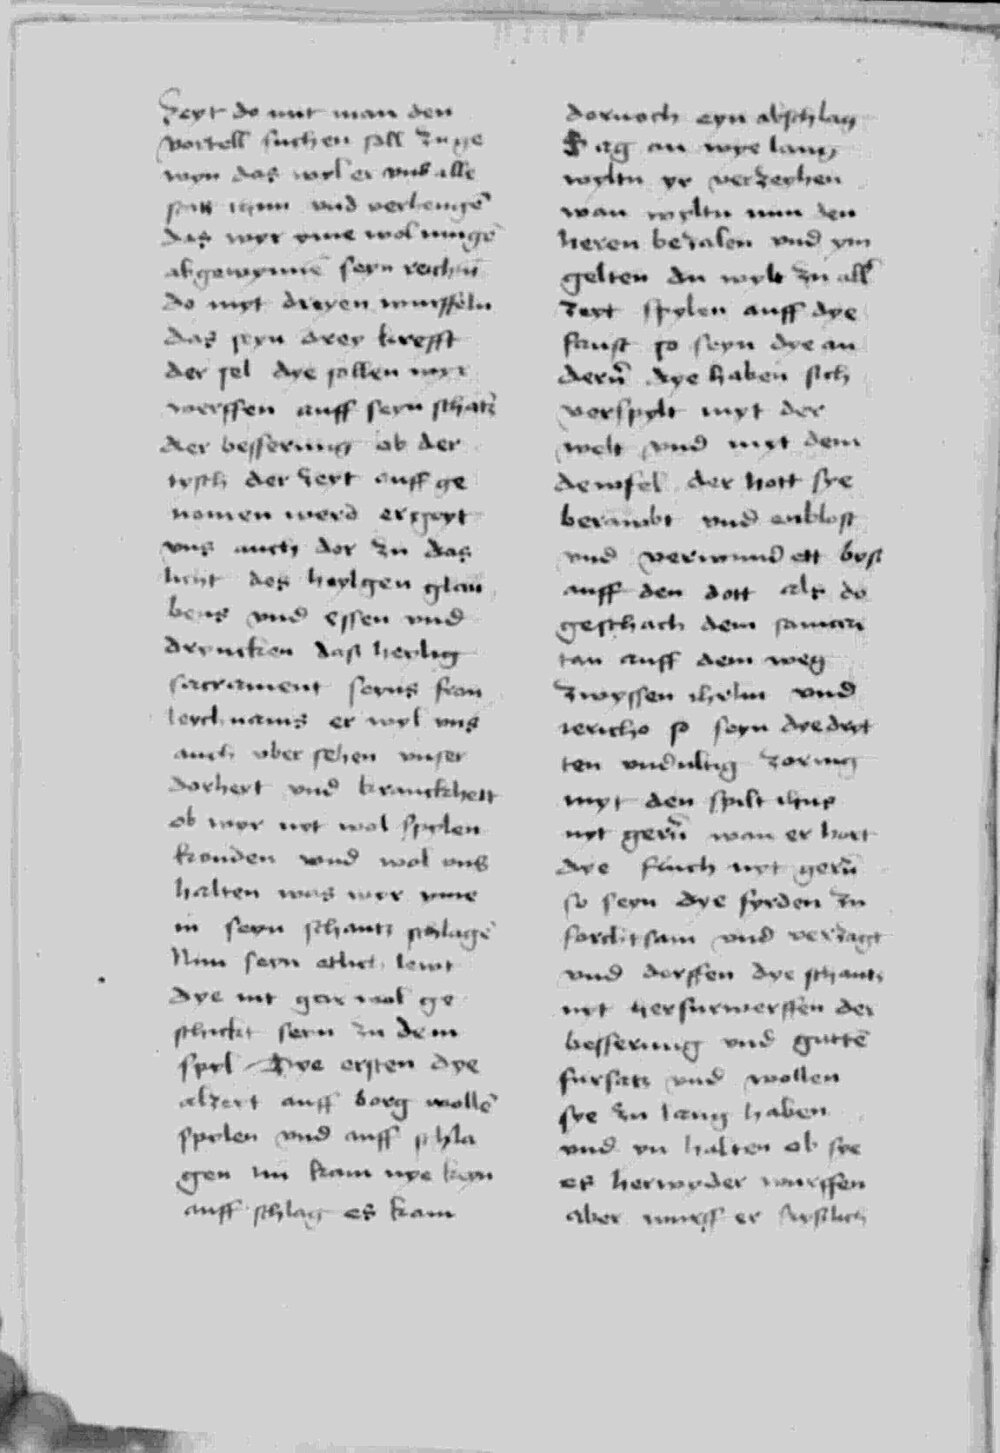 zeyt do mit man den
vortell suchen soll zu ge
wyn das wyl er uns alle
stat thun vnd verhengē
das wyr yme wol mugē
abgewynnē seyn reichū
do myt dreyen wurffeln
das seyn drey krefft
der sel dye sollen wyr
werffen auff seyn schatz
der besserung ob der
tysch der zeyt auff ge
nomen werd er geyt
vns auch dor zu das
licht des heylgen glau
bens vnd essen vnd
dryncken das heylig
sacrament seyns fron
leychnams er wyl vns
auch vber sehen vnser
dorheyt vnd kranckheit
ob wyr nyt wol spylen
konden vnd wol vns
halten was wyr yme
in seyn schantz schlagē
Nun seyn etlich lewt
dye nit gar wol ge
schickt seyn zu dem
spyl Dye ersten dye
alzeyt auff borg wollē
spylen vnd auff schla
gen nu kam nye keyn
auff schlag es kam
dornoch eyn abschlag
Sag an wye lang
wyltu yr verzeyhen
wan wyltu nun den
heren bezalen vnd ym
gelten du wylt zu all
zeyt spylen auff dye
faust so seyn dye an
dern̄ dye haben sich
verspylt myt der
welt vnd myt dem
dewfel der hott sye
beraubt vnd enblost
vnd verwund ett bys
auff den dott als do
geschach dem samari
tan auff dem weg
zwyssen ihrlm vnd
iericho so seyn dye dryt
ten vndultig zornig
myt den spilt ihus
nyt gern̄ wan er hort
dye fluch nyt gern̄
so seyn dye fyrden zu
forchtsam vnd verzagt
vnd dorffen dye schantz
nyt herfurwerffen der
besserung vnd guttē
fursatz vnd wollen
sye zu lang haben
vnd yn halten ob sye
es herwyder wurffen
aber wurff er